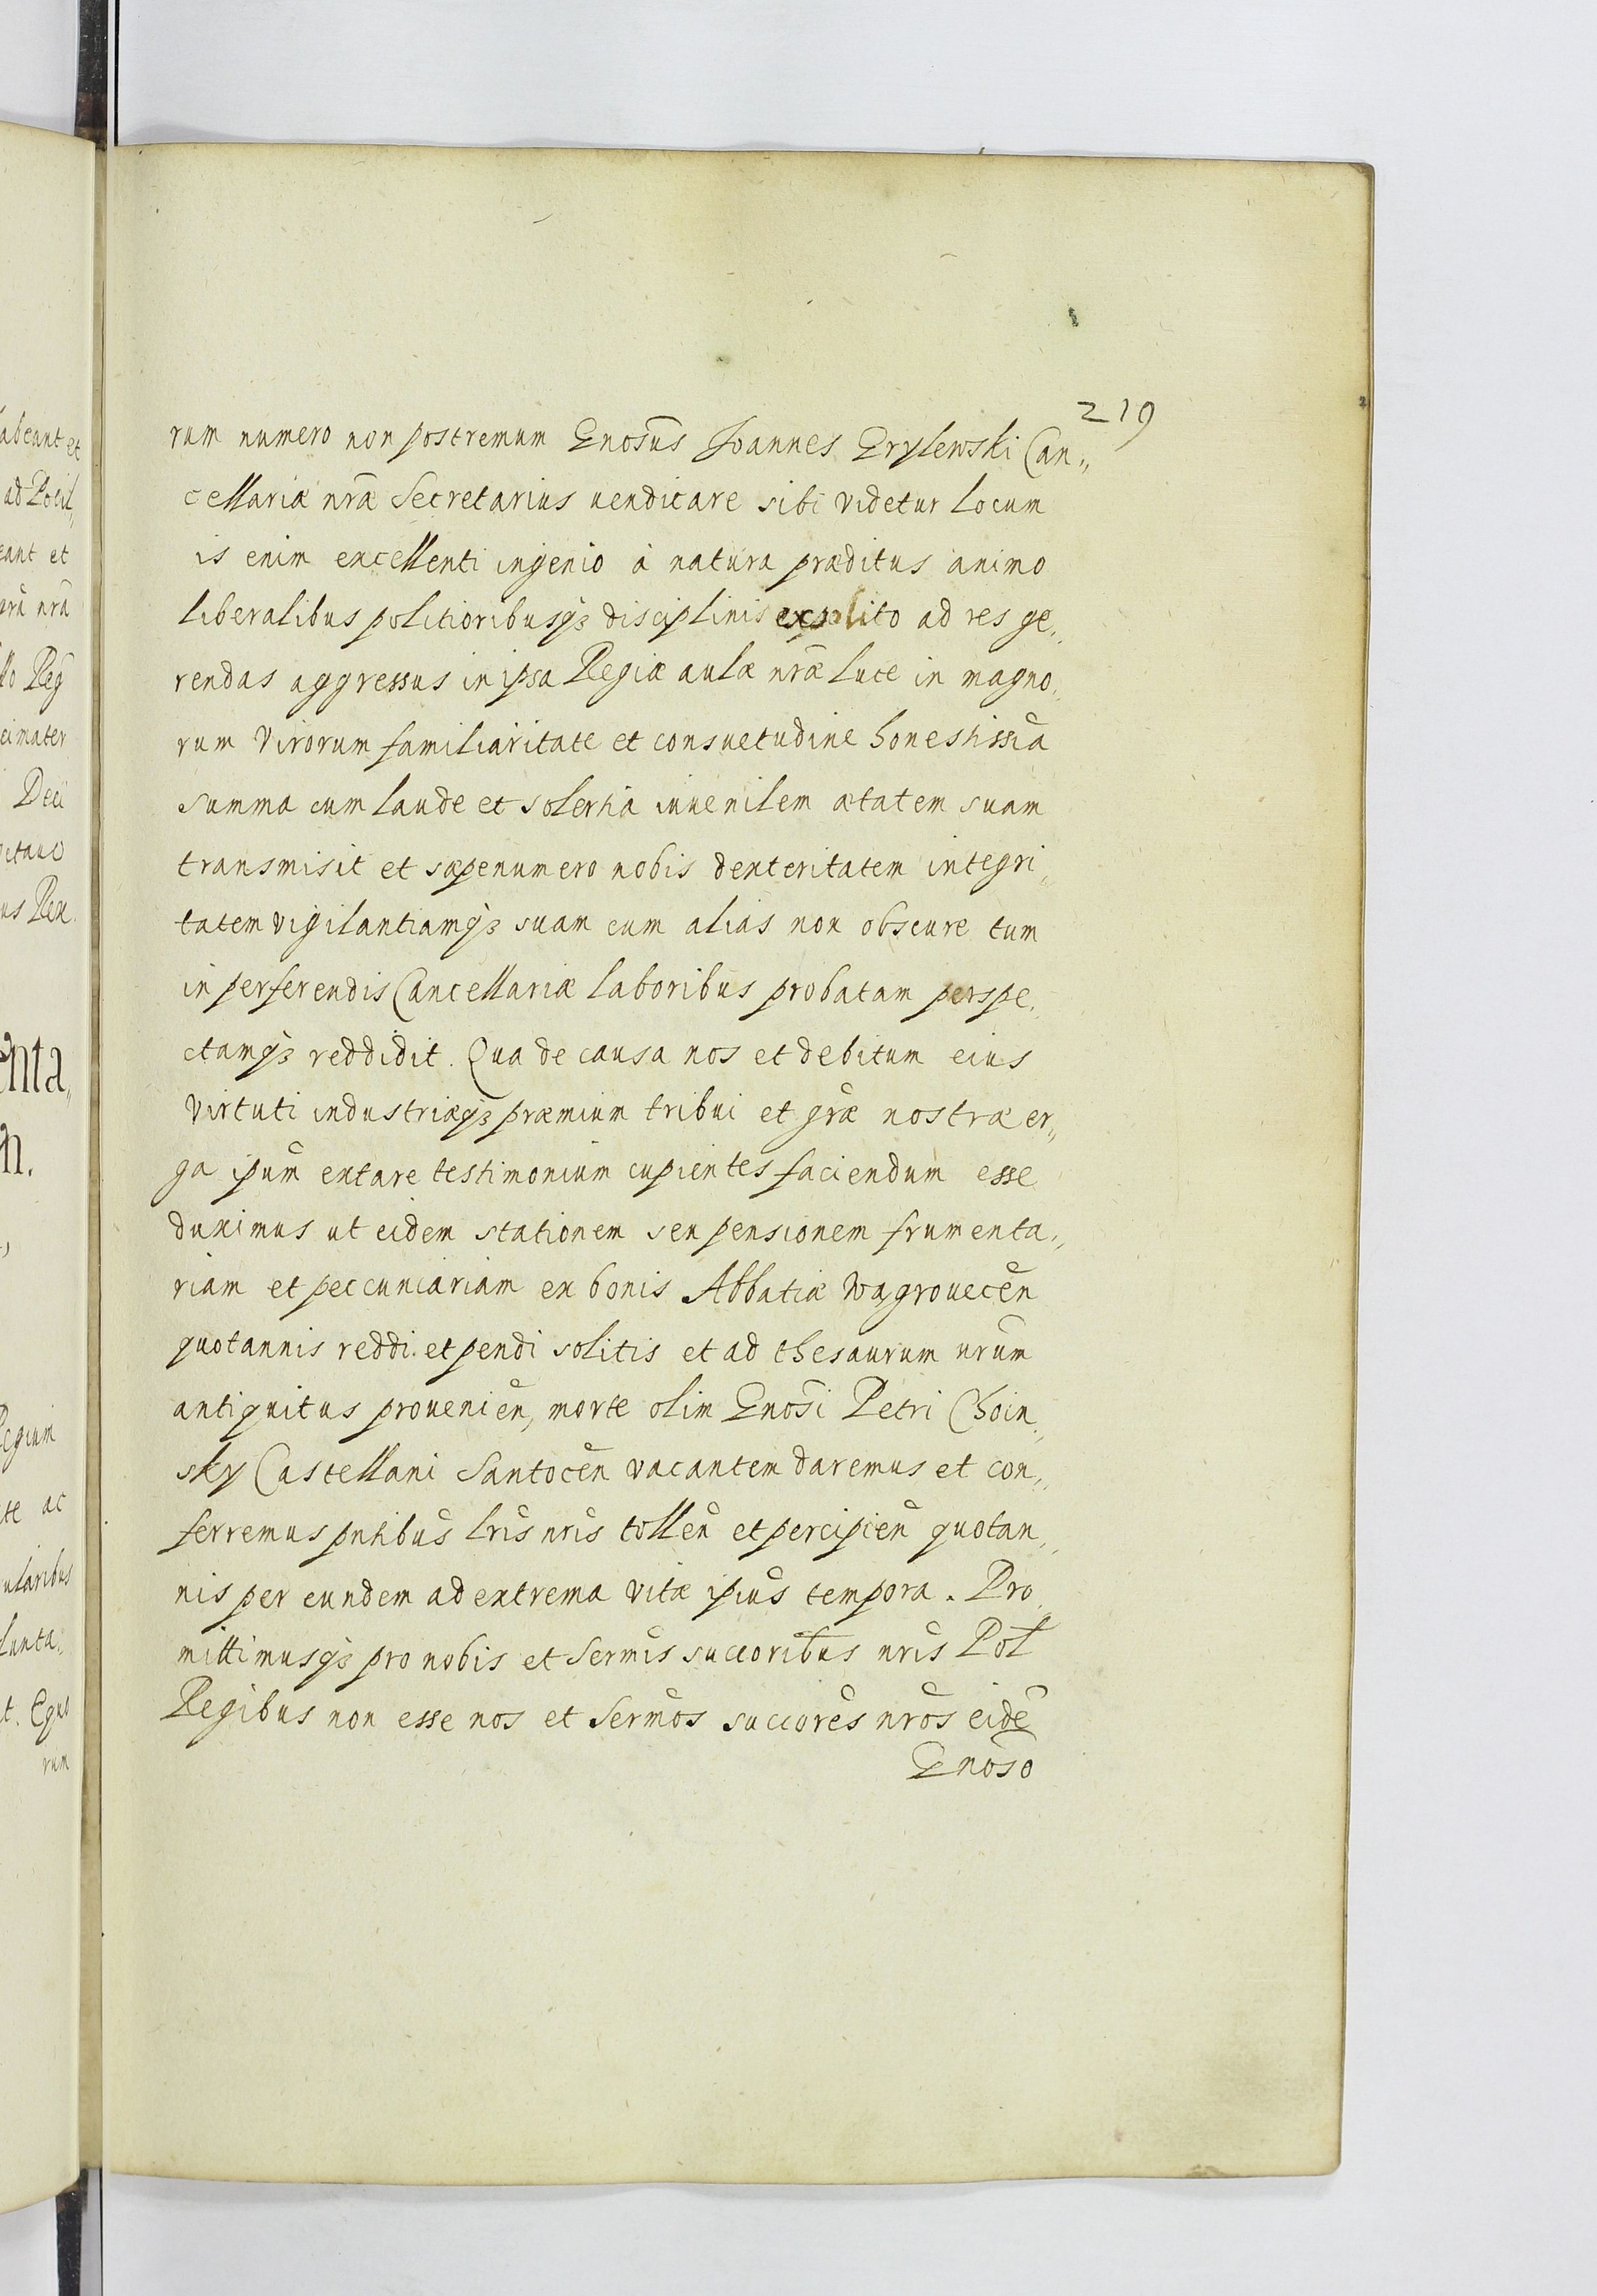 219
rum numero non postremum Gnosūs Joannes Grylewski Can„
cellariæ nr̄æ Secretarius uendicare sibi videtur locum
is enim excellenti ingenio à natura præditus animo
liberalibus politioribusqȝ disciplinis expolito ad res ge„
rendas aggressus in ipsa Regiæ aulæ nr̄æ luce in magno„
rum virorum familiaritate et consuetudine honestissīa
summa cum laude et solertia iuuenilem ætatem suam
transmisit et sæpenumero nobis dexteritatem integri„
tatem vigilantiamqȝ suam cum alias non obscure tum
in perferendis Cancellariæ laboribus probatam perspe„
ctamqȝ reddidit. Qua de causa nos et debitum eius
virtuti industriæqȝ præmium tribui et gr̄æ nostræ er„
ga ipūm extare testimonium cupientes faciendum esse
duximus ut eidem stationem seu pensionem frumenta„
riam et peccuniariam ex bonis Abbatiæ Wagrouecēn
quotannis reddi et pendi solitis et ad thesaurum nr̄um
antiquitus prouenieñ, morte olim Gnosī Petri Choin„
sky Castellani Santocēn vacantem daremus et con„
ferremus pn̄tibus lr̄is nr̄is tolleñ et percipieñ quotan„
nis per eundem ad extrema vitæ ipīus tempora. Pro„
mittimusqȝ pro nobis et Sermīs succoribūs nr̄is Pol̄
Regibus non esse nos et Sermōs succorēs nr̄os eidē
Gnōso
abeant et
eant et
arū nrā
llo Reḡ
ei mater
enta„
n.
Regium
te ac
ularibus
lunta„
t. Equo
rum